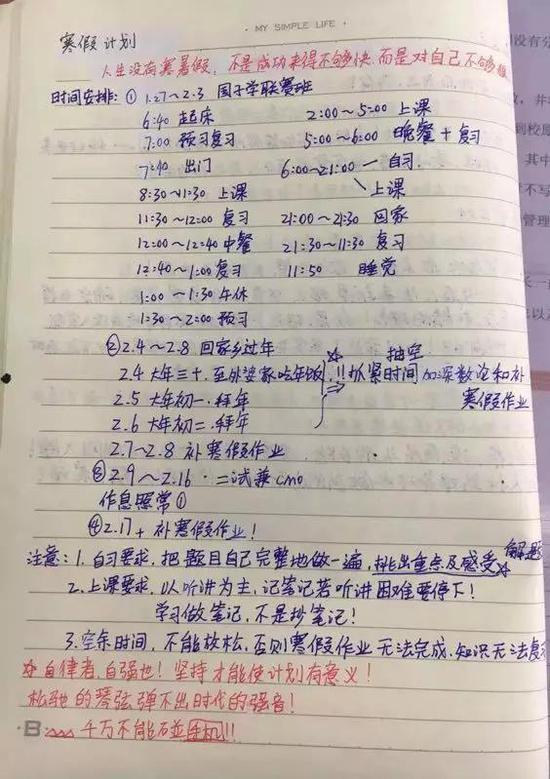 · MY SIMPLE LIFE ·
寒假计划
人生没有寒暑假，不是成功来得不够快，而是对自己不够狠
时间安排：① 1.27~2.3 国子学联赛班
6:40 起床 2:00~5:00 上课
7:00 预习复习 5:00~6:00 晚餐+复习
7:40 出门 6:00~21:00 — 自习
8:30~11:30 上课 上课
11:30~12:00 复习 21:00~21:30 回家
12:00~12:40 中餐 21:30~11:30 复习
12:40~1:00 复习 11:50 睡觉
1:00~1:30 午休
1:30~2:00 预习
②2.4~2.8 回家乡过年 ☆ 抽空
2.4 大年三十.至外婆家吃年饭 !! 抓紧时间加深数论和补
2.5 大年初一.拜年 寒假作业
2.6 大年初二.拜年
2.7~2.8 补寒假作业
③2.9~2.16 二试兼cmo
作息照常①
④2.17+ 补寒假作业！
注意：1.自习要求，把题目自己完整地做一遍，挑出重点及感受☆ 解题
2.上课要求，以听讲为主，记笔记若听讲困难要停下！
学习做笔记，不是抄笔记！
3.空余时间，不能放松，否则寒假作业无法完成，知识无法复
☆自律者，自强也！坚持才能使计划有意义！
松驰的琴弦弹不出时代的强音！
·B· 千万不能碰手机!!